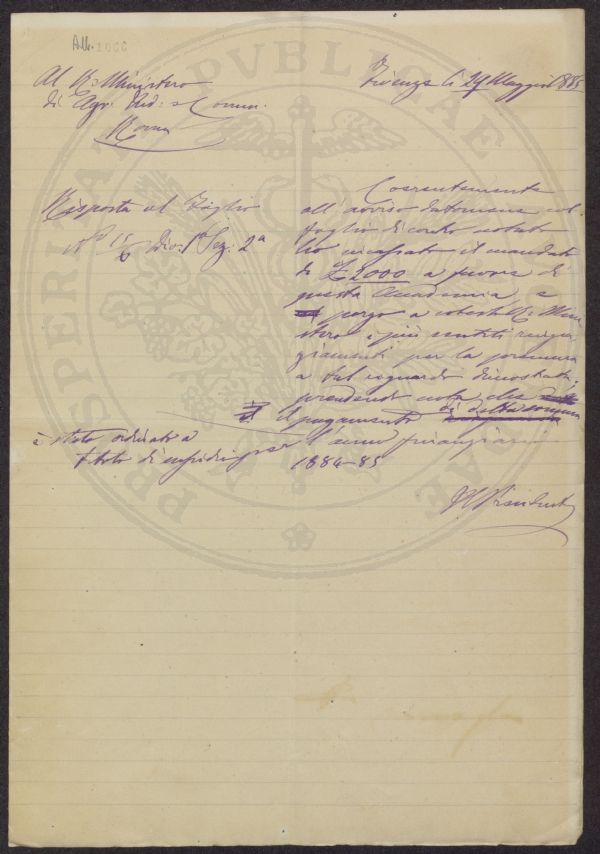 Al R. Ministero
di Agr. Ind. e Comm.
Roma
Firenze li 29 Maggio 1885
Risposta al Foglio
Nº 15/6 Div. 1ª Sez. 2ª
Coerentemente
all'avviso datomene col
foglio di contro notato
ho incassato il mandato
di £ 2000 a favore di
questa Accademia, e
porgo a cotesto R. Mini
stero i più sentiti ringra
ziamenti per la premura
a tal riguardo dimostrata,
prendendo nota che
il pagamento di detta somma
è stato ordinato a
titolo di sussidio per l'anno finanziario
1884-85
Il Presidente
PROSPERITATI PVBLICAE